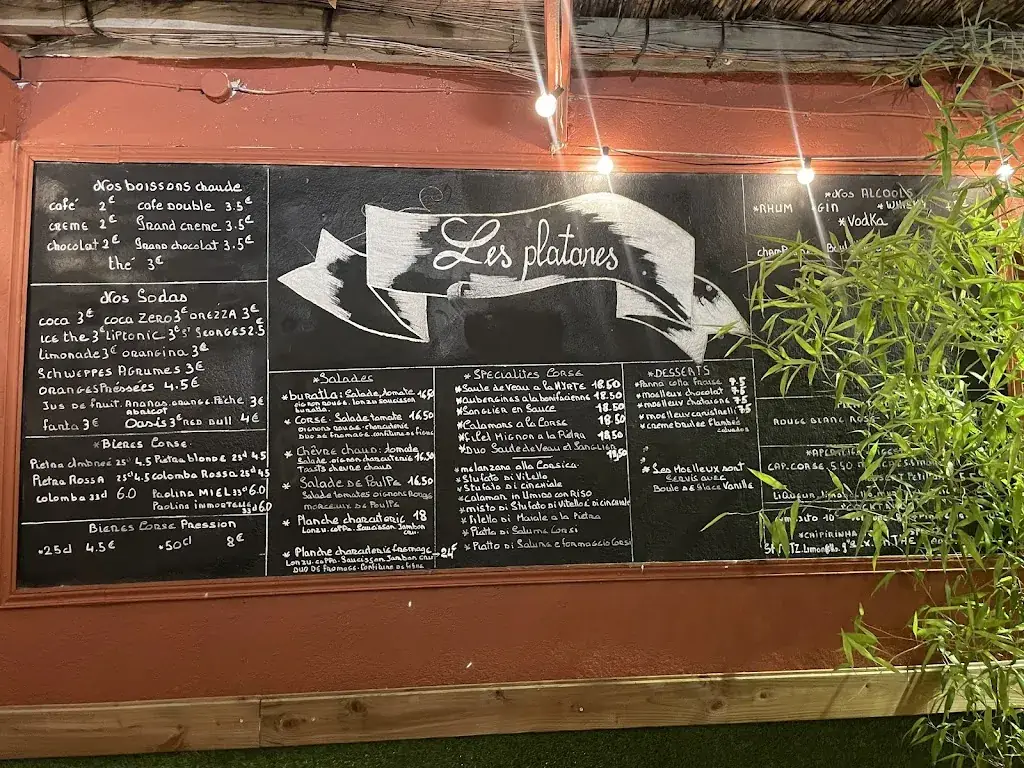 Nos boissons chaude
café 2€ café Double 3.5€
CREME 2€ Grand creme 3.5€
chocolat 2€ Grand chocolat 3.5€
thé 3€
Nos Sodas
coca 3€ coca ZERO 3€ OREZZA 3€
ICE the 3€ LIPTONIC 3€ ST GEORGES 2.5€
Limonade 3€ ORANGINA 3€
SCHWEPPES AGRUMES 3€
ORANGES PRESSÉES 4.5€
Jus de fruit. Ananas. orange. Pêche 3€
ABRICOT
Fanta 3€ Oasis 3€ RED BULL 4€
*Bieres Corse
Pietra Ambrée 25cl 4.5 Pietra blonde 25cl 4.5
Pietra ROSSA 25cl 4.5 colomba Rossa 25cl 4.5
colomba 33cl 6.0 Paolina MIEL 33cl 6.0
Paolina IMMORTELLE 33cl 6.0
Bieres Corse Pression
*25cl 4.5€ *50cl 8€
Les platanes
*Salades
*buratta: Salade, tomate 16,50
oignon rouge. lonzu saucisson
buratta.
* CORSE. Salade tomate 16.50
oignons rouge. charcuterie
DUO DE fromage. confiture de figue
* Chèvre chaud: tomate
Salade. oignon charcuterie 16.50
Toasts chevre chaud
* SALADE DE POULPE 16.50
Salade tomates oignons Rouge
morceaux de Poulpe
* Planche charcuterie 18
Lonzu. coppa. Saucisson. Jambon
cru.
* Planche charcuterie fromage 24€
Lonzu. coppa. Saucisson Jambon cru
DUO DE fromage. Confiture de figue
*SPECIALITES CORSE
*Saute de Veau a la MYRTE 18.50
*aubergines a la bonifacienne 18.50
*Sanglier en Sauce 18.50
*Calamars a la Corse 18.50
*Filet Mignon a la Pietra 18,50
*Duo Saute de Veau et Sanglier 18,50
*melanzana alla Corsica
*Stufato di Vitello
*Stufato di cinghiale
*calamari in Umido con Riso
*misto di Stufato di Vitello e di cinghiale
*Filello di Maiale a la Pietra
*Piatto di Salume Corsi
*Piatto di Salume e formaggio Corsi
*DESSERTS
*Panna cotta fraise 7.5
*moelleux chocolat 7.5
*moelleux chataigne 7.5
*moelleux canistrelli 7.5
*creme brulee flambée
*Les Moelleux sont
Servis avec
Boule de Glace Vanille
*Nos ALCOOLS
*RHUM GIN *WHISKY
*VODKA
ROUGE BLANC
CAP.CORSE 5.50
Liqueur
*CAIPIRINHA